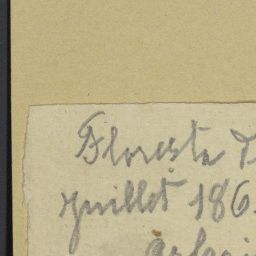 Floresta
Juillet 186